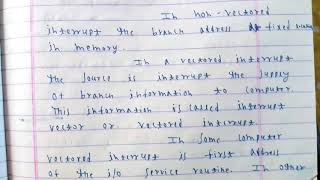 In non-vectored
interrupt the branch address fixed
in memory.
In a vectored interrupt
the source is interrupt the supply
of branch information to computer.
This information is called interrupt
vector or vectored interrupt.
In some computer
vectored interrupt is first address
of the i/o service routine. In other